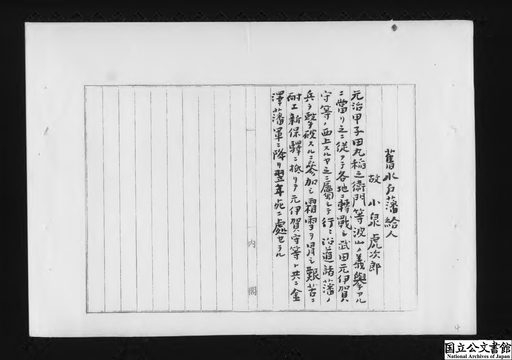 舊水戸藩給人
故 小泉虎次郎
元治甲子田丸稲之衛門等波山ノ義擧アル
ニ當リ之ニ従ヲテ各地ニ轉戰シ武田元伊賀
守等ノ西上スルヤ之ニ属シテ行ニ沿道諸藩ノ
兵ヲ撃破スルニ參加シ霜雪ヲ冒シ艱苦ニ
耐エ新保驛ニ抵リテ元伊賀守等ト共ニ金
澤藩軍ニ降リ翌年死ニ處セラル
内閣
国立公文書館
National Archives of Japan